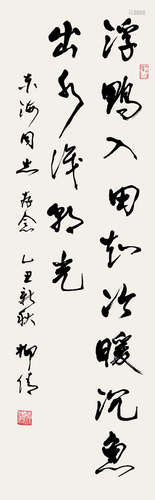 浮鸭入田知冷暖沉鱼
出水识就光
东海同志存念 乙丑新秋 柳倩